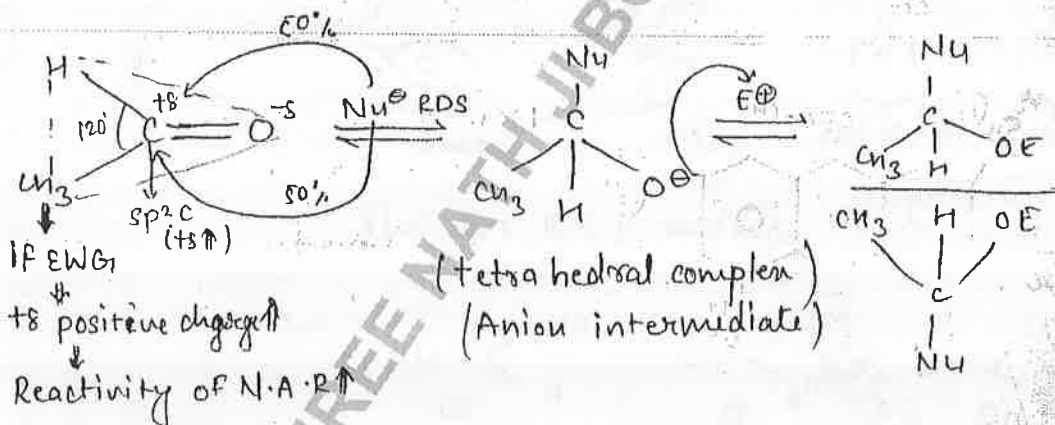 50%
H
+δ
120°
C = O
-δ
Nu⊖ RDS
CH3
sp2 C
(+δ⇑)
50%
IF EWG
+δ positive charge⇑
Reactivity of N.A.R⇑
Nu
C
CH3
H
O⊖
E⊕
(tetra hedral complex)
(Anion intermediate)
Nu
C
CH3
H
OE
CH3
H
OE
C
Nu
REE NATH JI